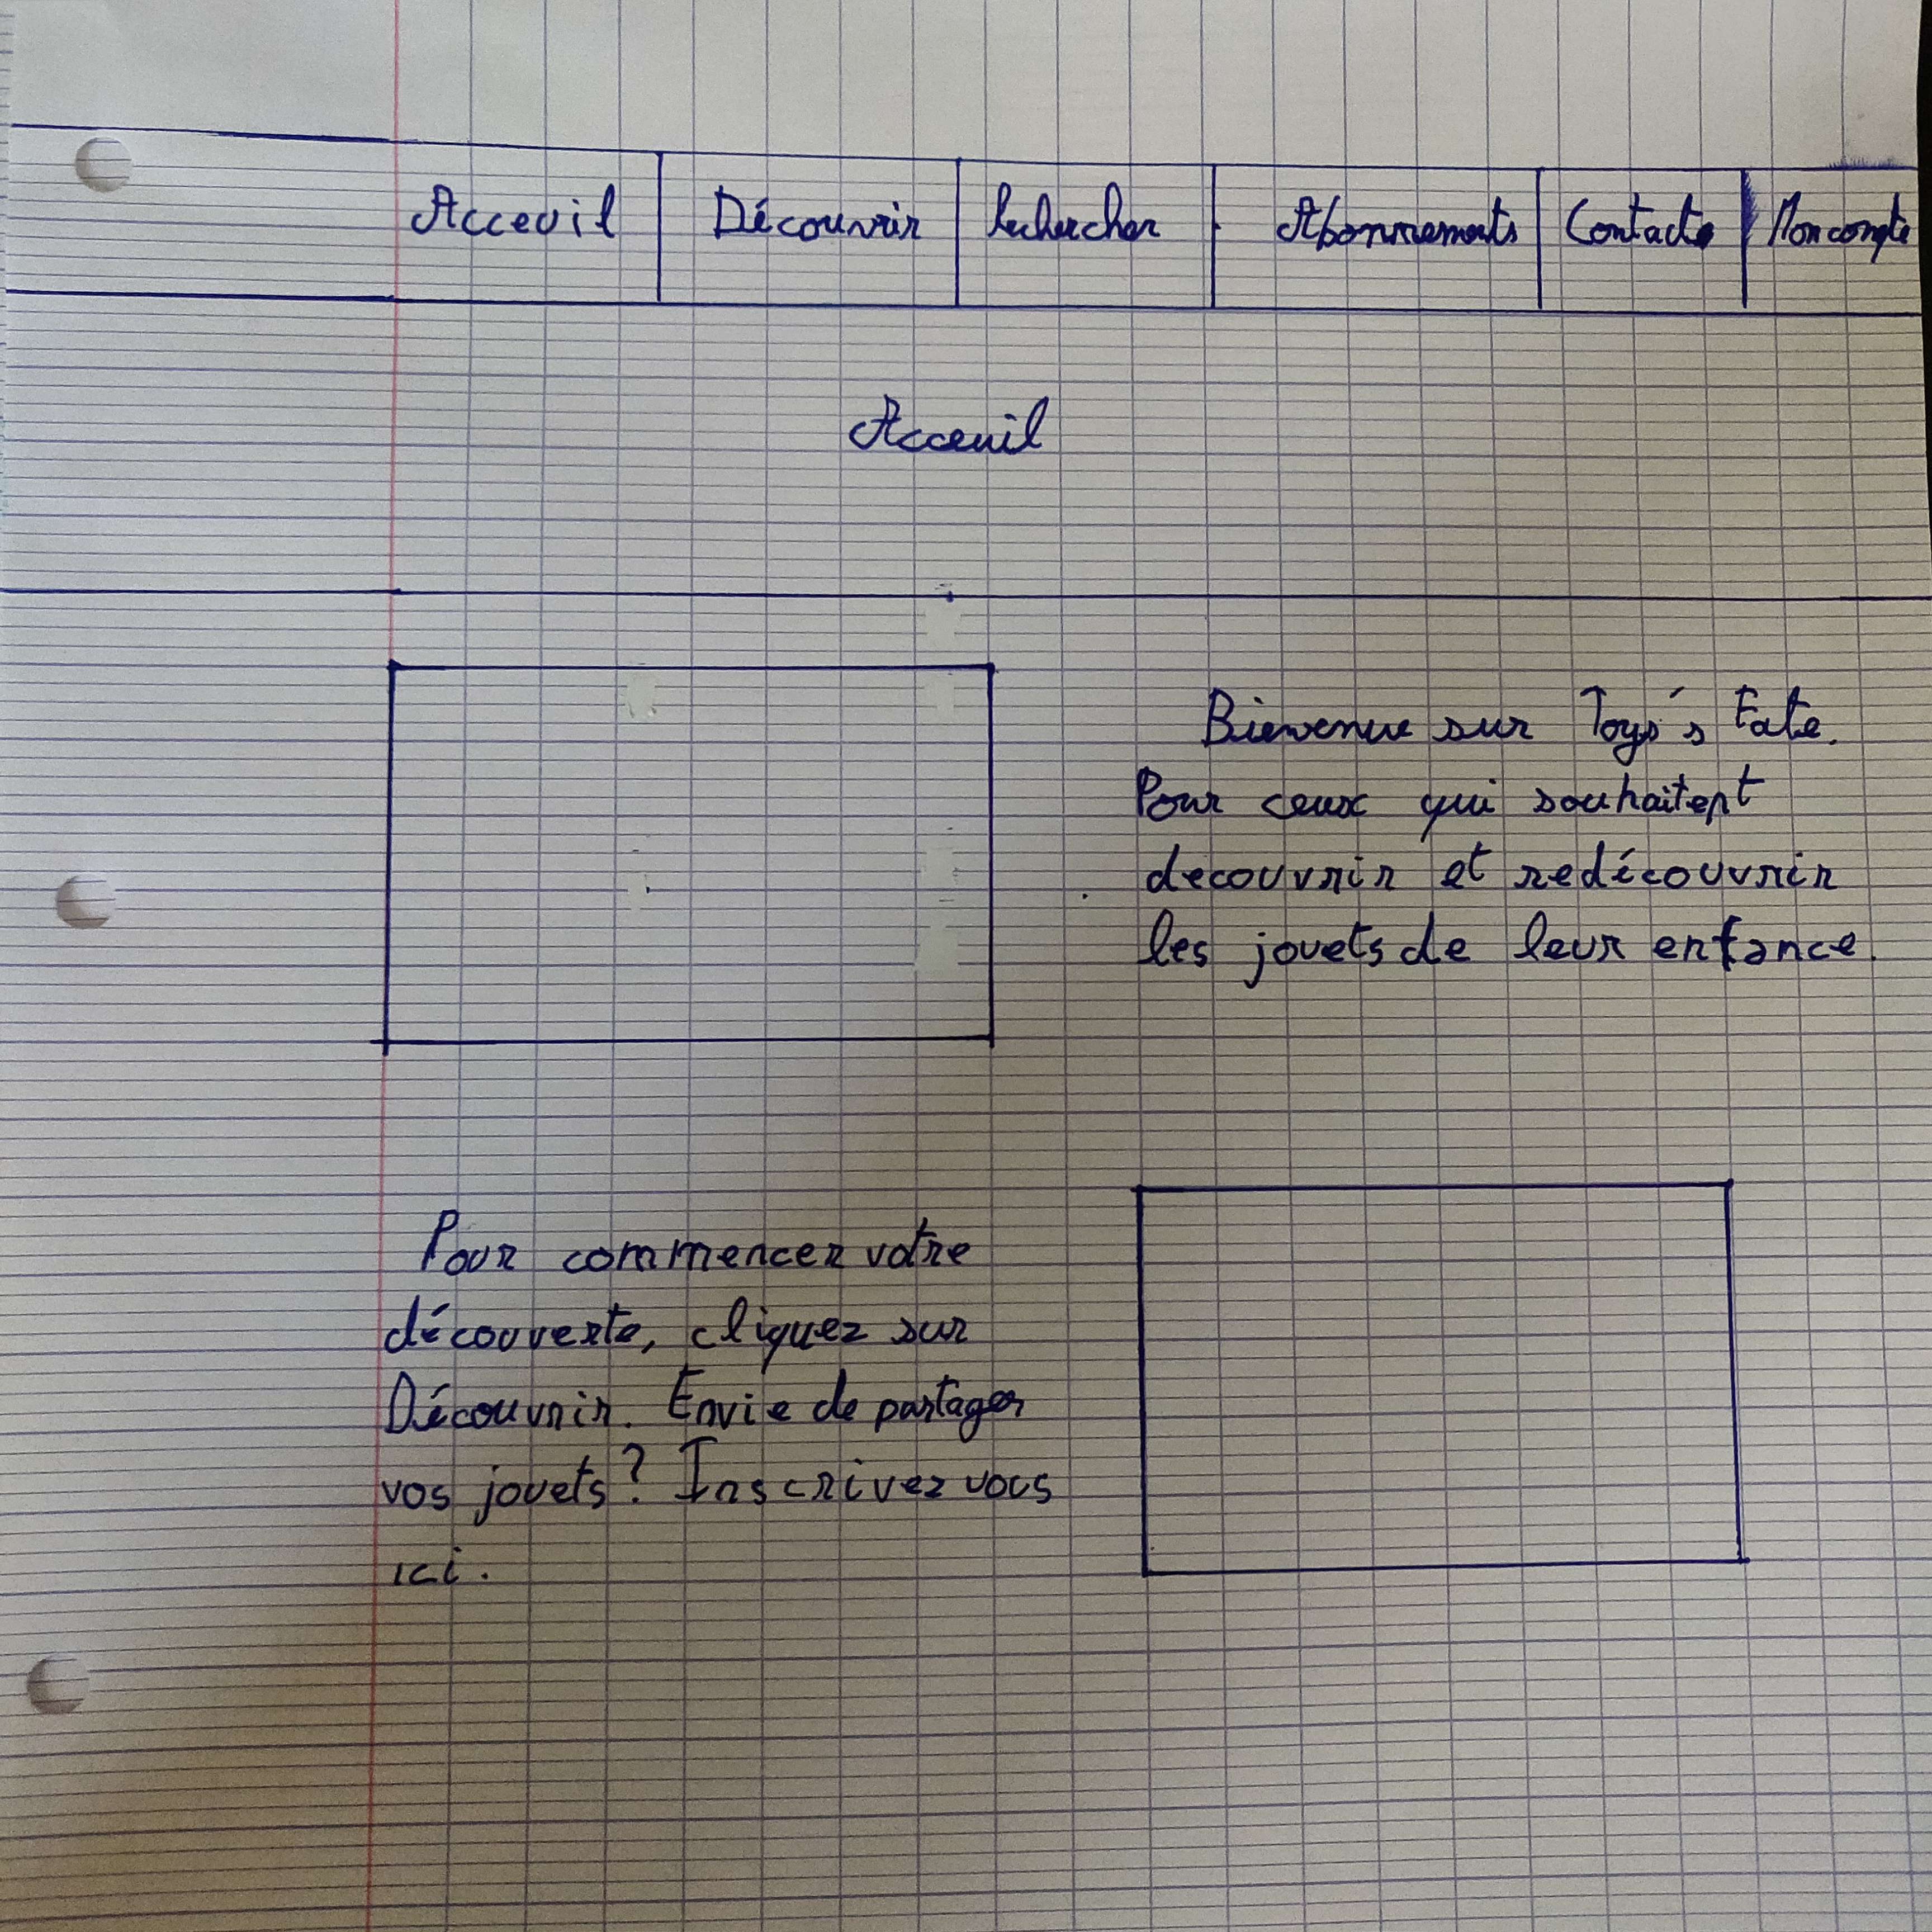 Acceuil Découvrir Rechercher Abonnements Contacts Mon compte
Acceuil
Bienvenue sur Toys's Fate.
Pour ceux qui souhaitent
decouvrir et redécouvrir
les jouets de leur enfance.
Pour commencer votre
découverte, cliquez sur
Découvrir. Envie de partager
vos jouets? Inscrivez vous
ici.